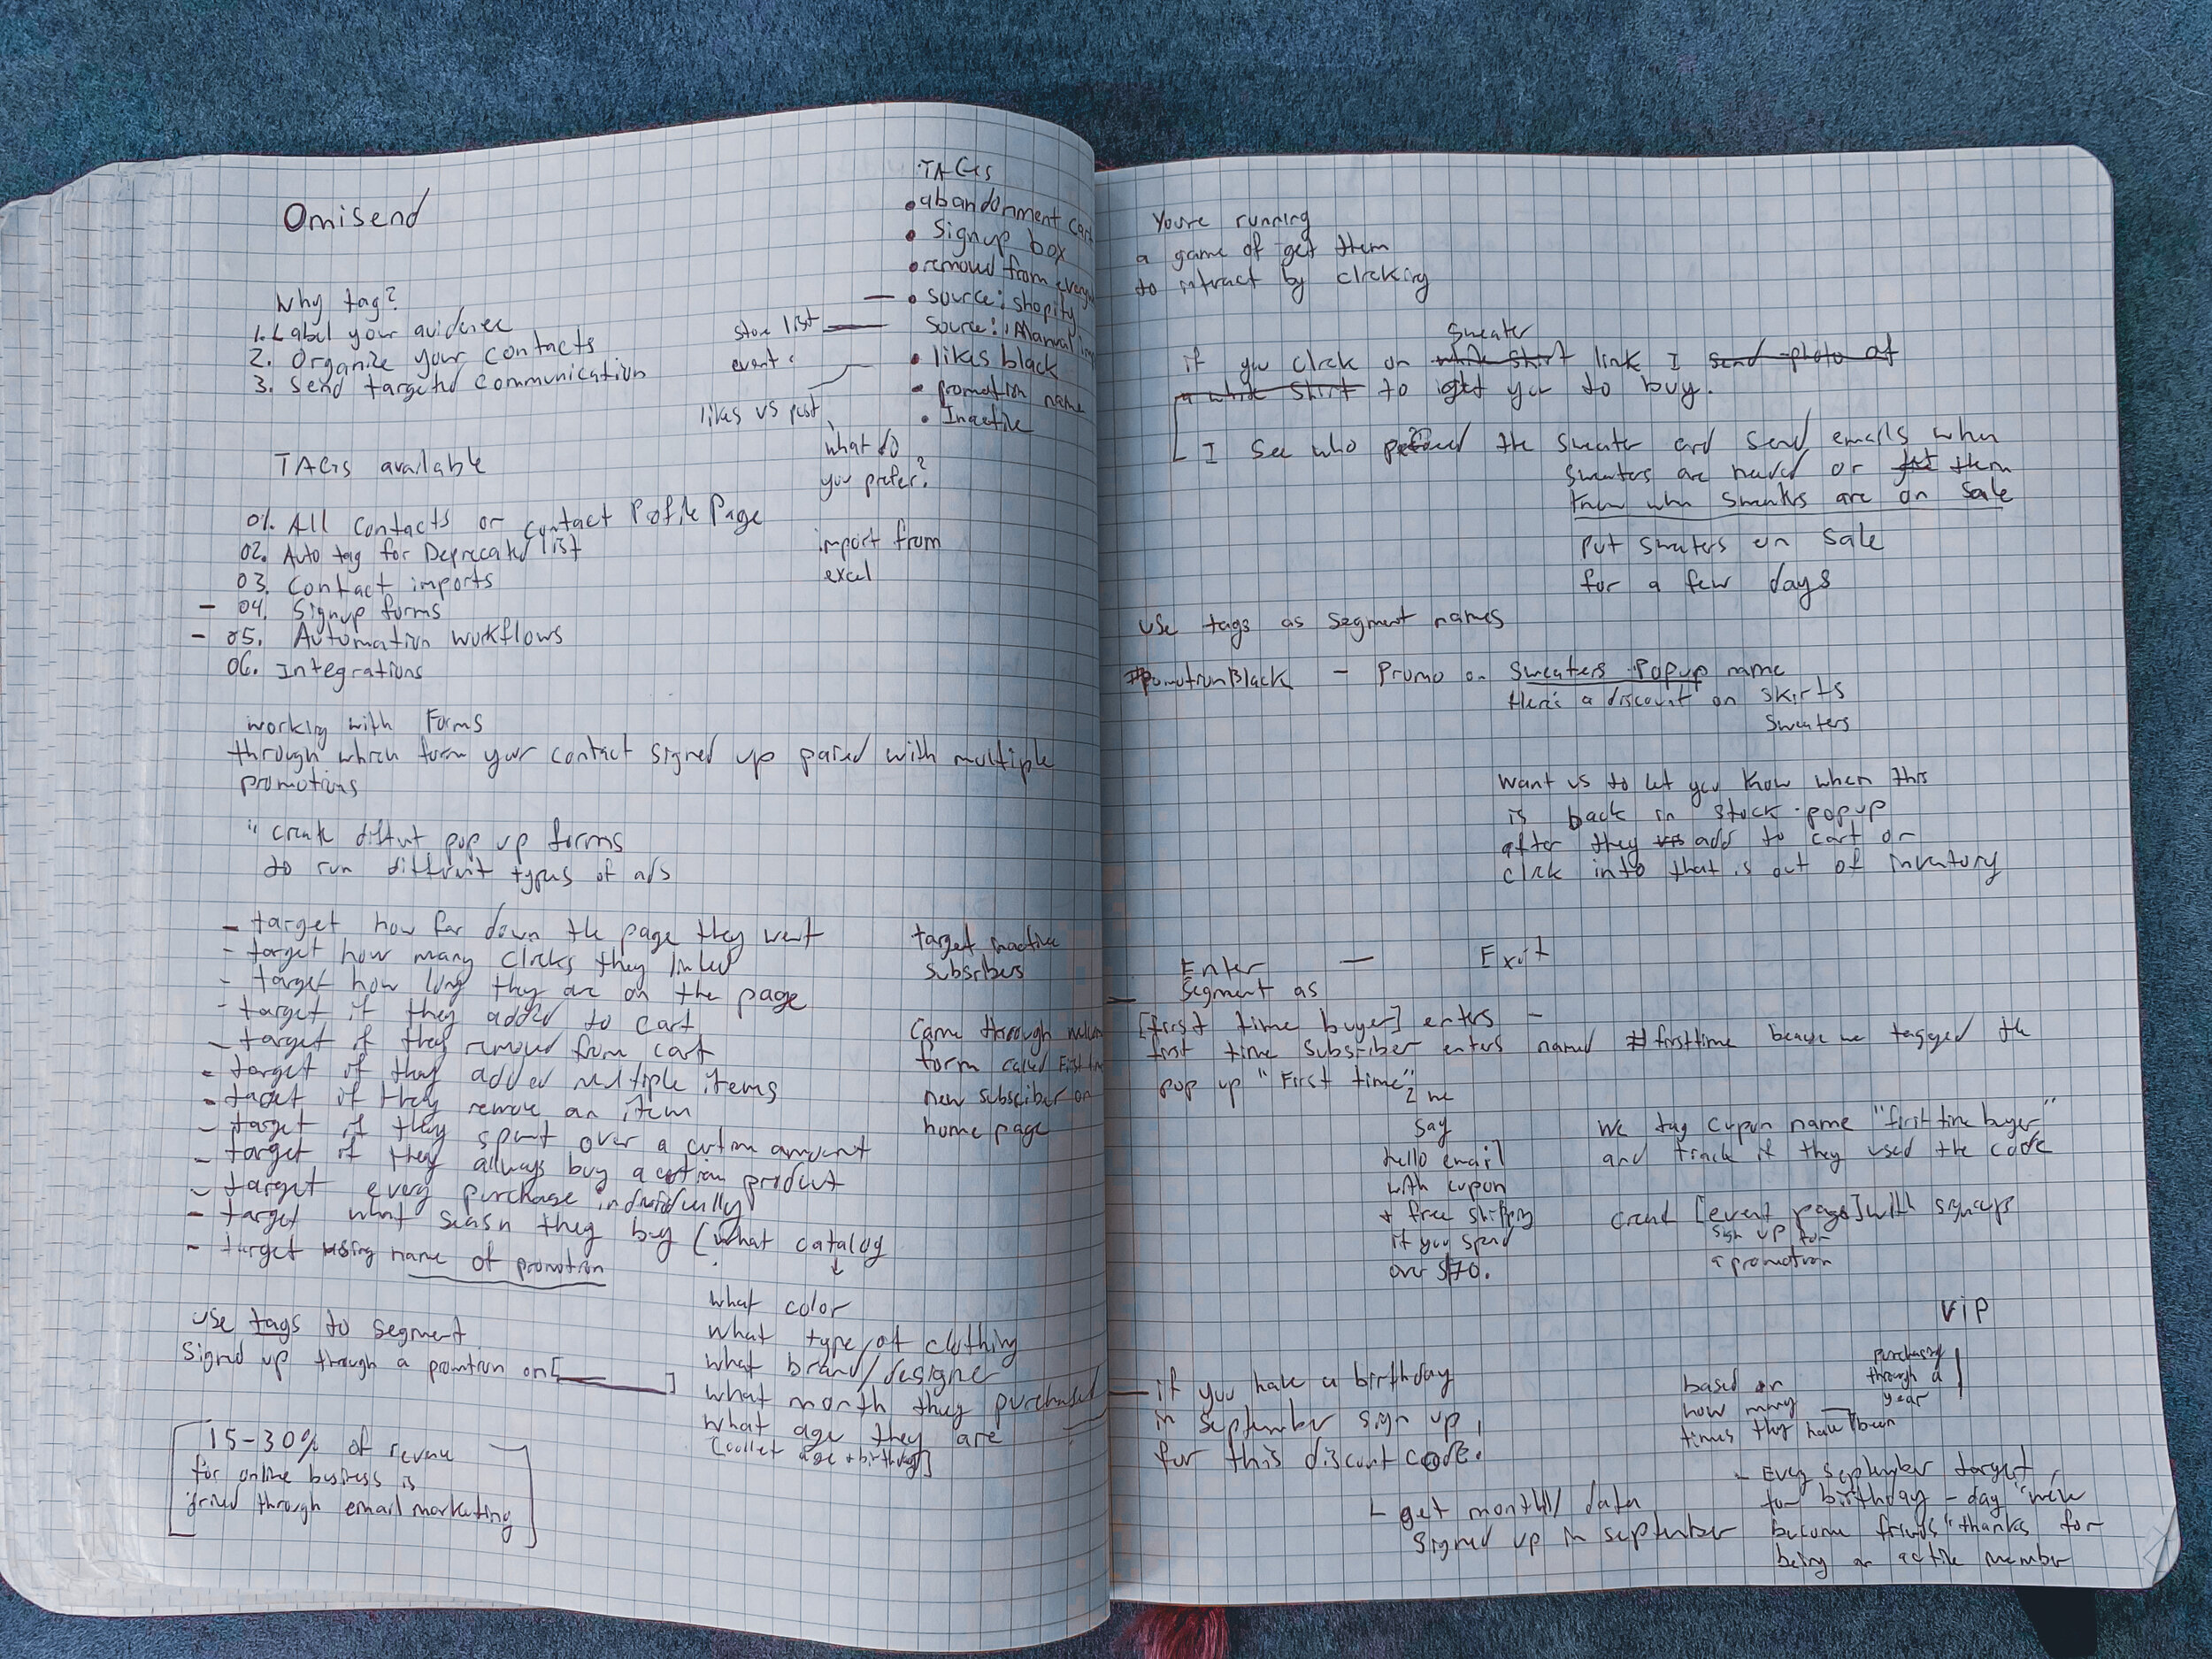 Omisend
Why tag?
1. Label your audience
2. Organize your contacts
3. Send targeted communication
TAGs available
01. All contacts or contact Profile Page
02. Auto tag for Deprecated list
03. Contact imports
- 04. Signup forms
- 05. Automation workflows
06. Integrations
TAGs
• abandonment cart
• Signup box
• removed from
— • source: shopify
source: Manual
• likes black
• promotion name
• Inactive
store list
event
likes vs past
what do
you prefer?
import from
excel
working with Forms
through which form your contact signed up paired with multiple
promotions
" create diffrent pop up forms
to run diffrent types of ads
- target how far down the page they went
- target how many clicks they linked
- target how long they are on the page
- target if they added to cart
- target if they removed from cart
- target if they added multiple items
- target if they remove an item
- target if they spent over a certian amount
- target if they allways buy a certian product
- target every purchase individually
- target what seasn they buy (what catalog
- target using name of promotion
target inactive
subscribers
came through
form called First
new subscriber on
home page
what color
what type of clothing
what brand/designer
what month they purchased
what age they are
[collect age + birthday]
use tags to segment
signed up through a promotion on [ ]
15-30% of revenue
for online business is
through email marketing
You're running
a game of get them
to intract by clicking
Sweater
if you click on white shirt link I send photo of
a white shirt to get you to buy.
I see who the sweater and send emails when
sweaters are or them
know when are on sale
put sweaters on sale
for a few days
use tags as segment names
#promotionBlack - Promo on Sweaters Popup name
Here's a discount on skirts
Sweaters
want us to let you know when this
is back in stock · popup
after they add to cart or
click into that is out of inventory
Enter — Exit
segment as
[first time buyer] enters -
first time subscriber enters named #firsttime because we tagged the
pop up "First time"
say
hello email
with cupon
+ free shipping
if you spend
over $70.
we tag cupon name "first time buyer"
and track if they used the code
[event page] with signups
sign up for
a promotion
VIP
purchasing
through a
year
based on
how many
times they have been
— if you have a birthday
in september sign up
for this discount code.
get data
signed up in september
- Every september target
for birthday - day "
become friends" thanks for
being an active member